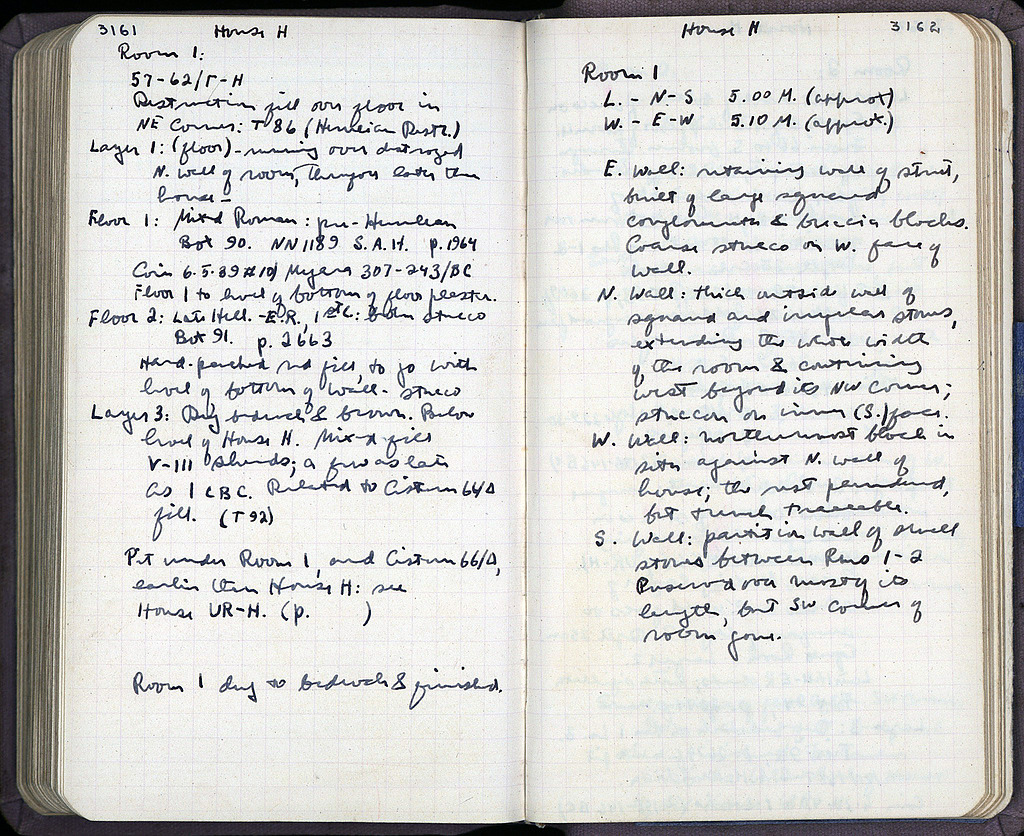 3161 House H
Room 1:
57-62/Γ-H
Destruction fill over floor in
NE Corner: T 86 (Herulian Destr.)
Layer 1: (floor) - running over destroyed
N. wall of room, therefore later than
house -
Floor 1: Mixed Roman: pre-Herulian
Box 90. NN1189 S.A.H. p.1964
Coin 6.5.39 #10/ Myers 307-243/BC
Floor 1 to level of bottom of floor plaster.
Floor 2: Late Hell. - E.R., 1st C: below stucco
Box 91. p. 2663
Hard-packed red fill, to go with
level of bottom of wall-stucco
Layer 3: Dug bedrock & brown. Below
level of House H. Mixed fill
V-III sherds; a few as late
as I CBC. Related to Cistern 66/Δ
fill. (T 92)
Pit under Room 1, and Cistern 66/Δ,
earlier than House H: see
House UR-H. (p. )
Room 1 dug to bedrock & finished.
House H 3162
Room 1
L. - N-S 5.00 M. (approx)
W. - E-W 5.10 M. (approx.)
E. Wall: retaining wall of street,
built of large squared
conglomerate & breccia blocks.
Coarse stucco on W. face of
wall.
N. Wall: thick outside wall of
squared and irregular stones,
extending the whole width
of the room & continuing
west beyond its NW Corner;
stuccoed on inner (S.) face.
W. Wall: northernmost block in
situ against N. wall of
house; the rest plundered,
but trench traceable.
S. Wall: partition wall of small
stones between Rms 1-2
Preserved over most of its
length, but SW corner of
room gone.